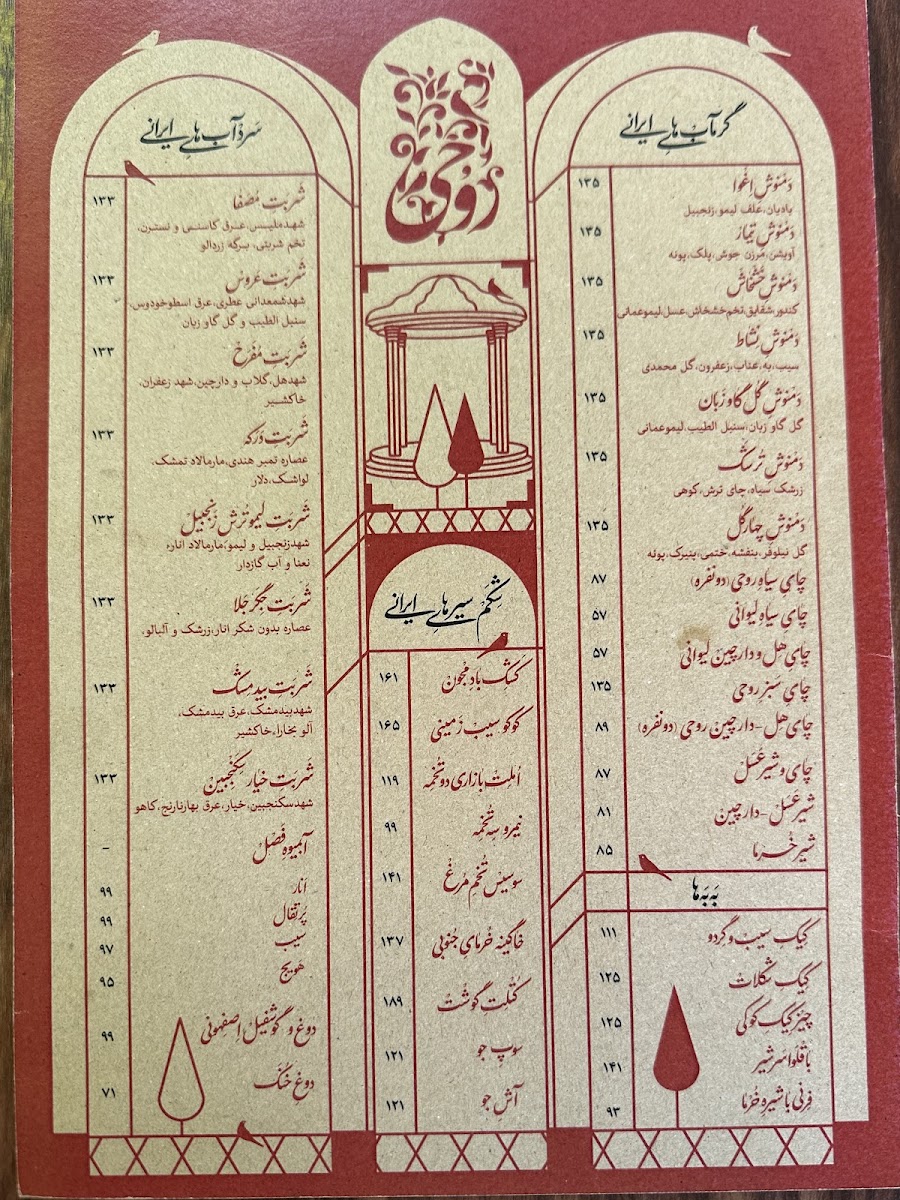 روحی
گرمآب های ایرانی
دمنوش اغوا ۱۳۵
بادیان،علف لیمو،زنجبیل
دمنوش تیمار ۱۳۵
آویشن،مرزن جوش،پلک،پونه
دمنوش خشخاش ۱۳۵
کندور،شقایق،تخم خشخاش،عسل،لیموعمانی
دمنوش نشاط ۱۳۵
سیب،به،عناب،زعفرون،گل محمدی
دمنوش گل گاو زبان ۱۳۵
گل گاو زبان،سنبل الطیب،لیموعمانی
دمنوش ترشک ۱۳۵
زرشک سیاه،چای ترش،کوهی
دمنوش چهارگل ۱۳۵
گل نیلوفر،بنفشه،ختمی،پنیرک،پونه
چای سیاه روحی (دونفره) ۸۷
چای سیاه لیوانی ۵۷
چای هل و دارچین لیوانی ۵۷
چای سبز روحی ۱۳۵
چای هل-دارچین روحی (دونفره) ۸۹
چای و شیر عسل ۸۷
شیر عسل-دارچین ۸۱
شیر خرما ۸۵
به به ها
کیک سیب و گردو ۱۱۱
کیک شکلات ۱۲۵
چیز کیک کوکی ۱۲۵
باقلوا سرشیر ۱۴۱
فرنی با شیره خرما ۹۳
شکم سیر های ایرانی
کشک بادمجون ۱۶۱
کوکو سیب زمینی ۱۶۵
املت بازاری دو تخمه ۱۱۹
نیمرو سه تخمه ۹۹
سوسیس تخم مرغ ۱۴۱
خاگینه خرمای جنوبی ۱۳۷
کتلت گوشت ۱۸۹
سوپ جو ۱۲۱
آش جو ۱۲۱
سردآب های ایرانی
شربت مصفا ۱۳۳
شهدملیسس،عرق کاسنی و نسترن،
تخم شربتی، برگه زردالو
شربت عروس ۱۳۳
شهدشمعدانی عطری،عرق اسطوخودوس،
سنبل الطیب و گل گاو زبان
شربت مفرح ۱۳۳
شهدهل،گلاب و دارچین،شهد زعفران،
خاکشیر
شربت دَرَکه ۱۳۳
عصاره تمبر هندی،مارمالاد تمشک،
لواشک،دلار
شربت لیموترش زنجبیل ۱۳۳
شهدزنجبیل و لیمو،مارمالاد اناره
نعنا و آب گازدار
شربت جگر جلا ۱۳۳
عصاره بدون شکر انار،زرشک و آلبالو،
شربت بیدمشک ۱۳۳
شهدبیدمشک،عرق بیدمشک،
آلو بخارا،خاکشیر
شربت خیار سکنجبین ۱۳۳
شهدسکنجبین،خیار،عرق بهارنارنج،کاهو
آبمیوه فصل -
انار ۹۹
پرتقال ۹۹
سیب ۹۷
هویج ۹۵
دوغ و گوشفیل اصفهونی ۹۹
دوغ خنک ۷۱